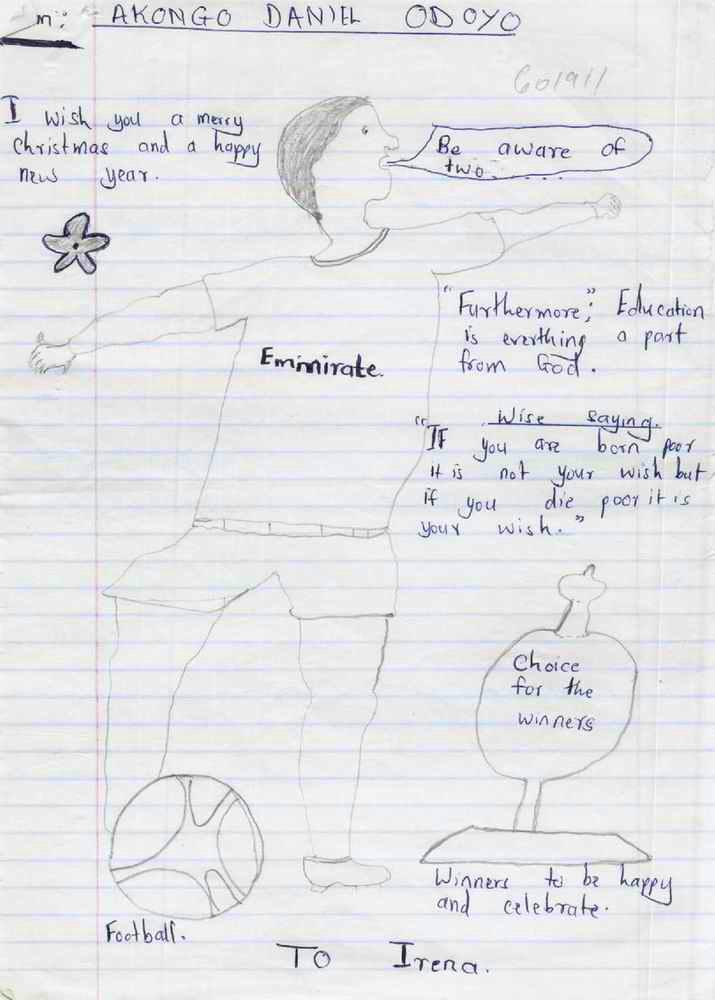 m: AKONGO DANIEL ODOYO
I wish you a merry
christmas and a happy
new year.
Be aware of
two......
"Furthermore"; Education
is everthing a part
from God.
Emmirate.
Wise saying.
"If you are born poor
it is not your wish but
if you die poor it is
your wish."
Choice
for the
winners
Winners to be happy
and celebrate.
Football.
To Irena.